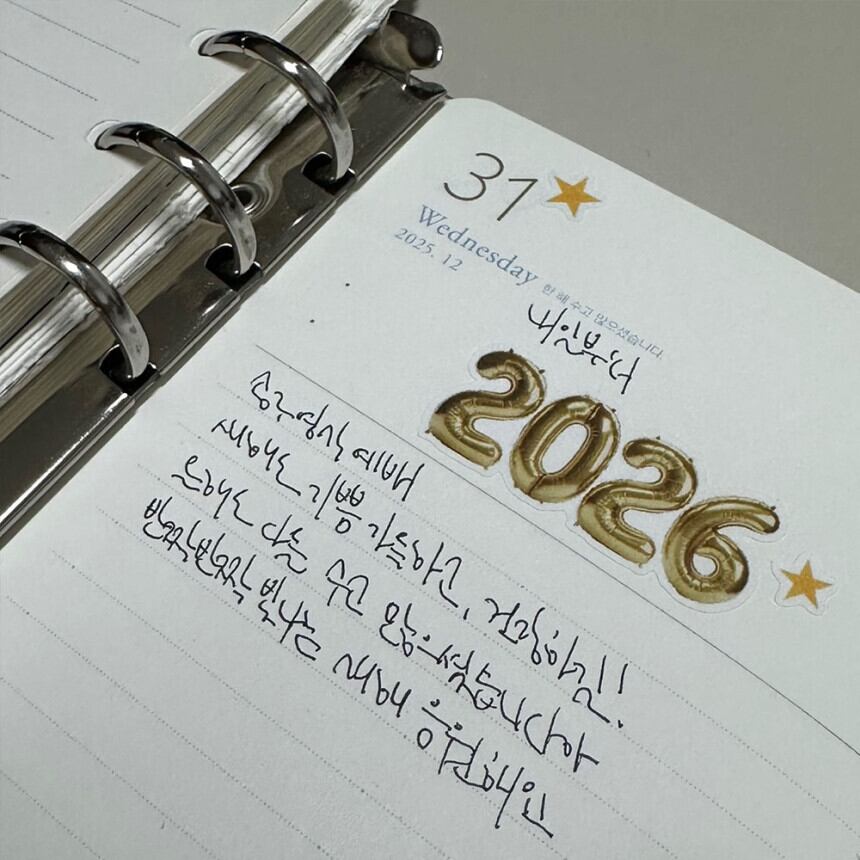 31
Wednesday
2025. 12
한 해 수고 많으셨습니다.
내일부터
2026
송구영신 예배
새해도 기쁨 가득하고, 건강하길!!
올해도 다들 수고 많으셨습니다아
반짝반짝 빛나는 새해 응원해요